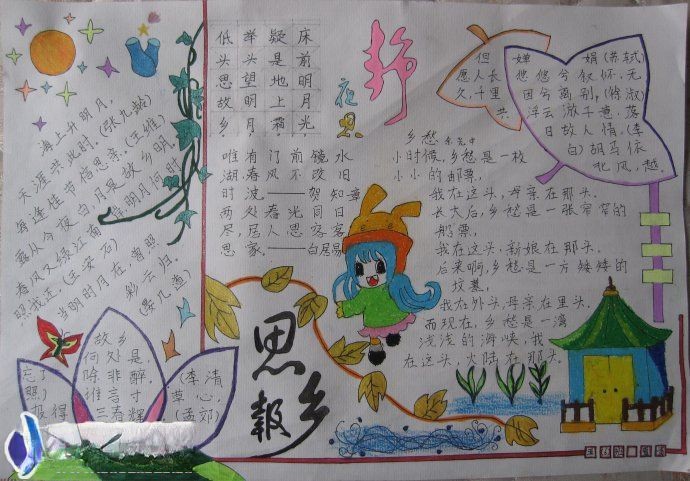 海上升明月,
天涯共此时。(张九龄)
每逢佳节倍思亲。(王维)
露从今夜白,月是故乡明
春风又绿江南
明月何时
照我还。(王安石)
当明时月在,曾照
彩云归。
(晏几道)
低举疑床
头头是前
思望地明
故明上月
乡月霜光
静
夜
思
唯有门前镜水
湖春风不改旧
时波。——贺知章
两处春光同日
尽,居人思客客
思家。——白居易
乡愁 余光中
小时候,乡愁是一枚
小小的邮票,
我在这头,母亲在那头。
长大后,乡愁是一张窄窄的
船票,
我在这头,新娘在那头。
后来啊,乡愁是一方矮矮的
坟墓,
我在外头,母亲在里头,
而现在,乡愁是一湾
浅浅的海峡,我
在这头,大陆在那头。
但
愿人长
久,千里
共
婵
娟(苏轼)
悠悠兮叙怀,无
因兮离别。(徐淑)
浮云游子意,落
日故人情,(李
白)胡马依
北风,越
故乡
何处是,
忘了
除非醉。
(李清
照)
谁言寸
草心,
报得
三春辉
(孟郊)
思
乡
报